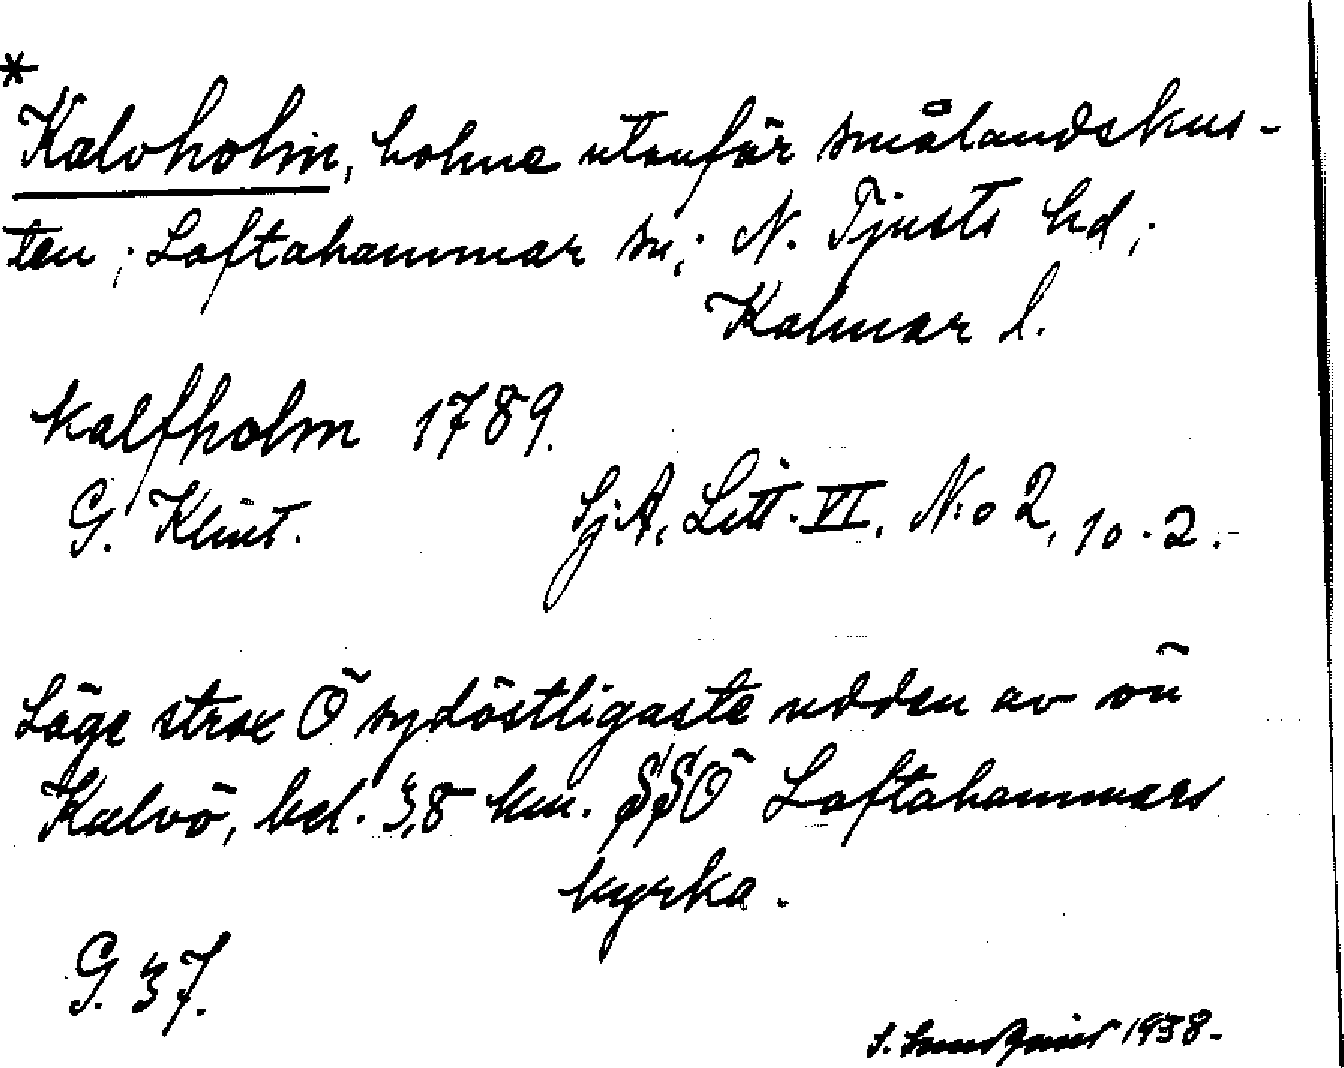 *
Kalvholm, holme utanför smålandskus-
ten; Loftahammar sn; N. Tjusts hd;
Kalmar l.
Kalfholm 1789.
G. Klint. SjA, Litt. VI, N:o 2, 10.2.
Läge strax Ö sydöstligaste udden av ön
Kalvö, bel. 3,8 km. SSÖ Loftahammars
kyrka.
G. 37.
S. 1938.